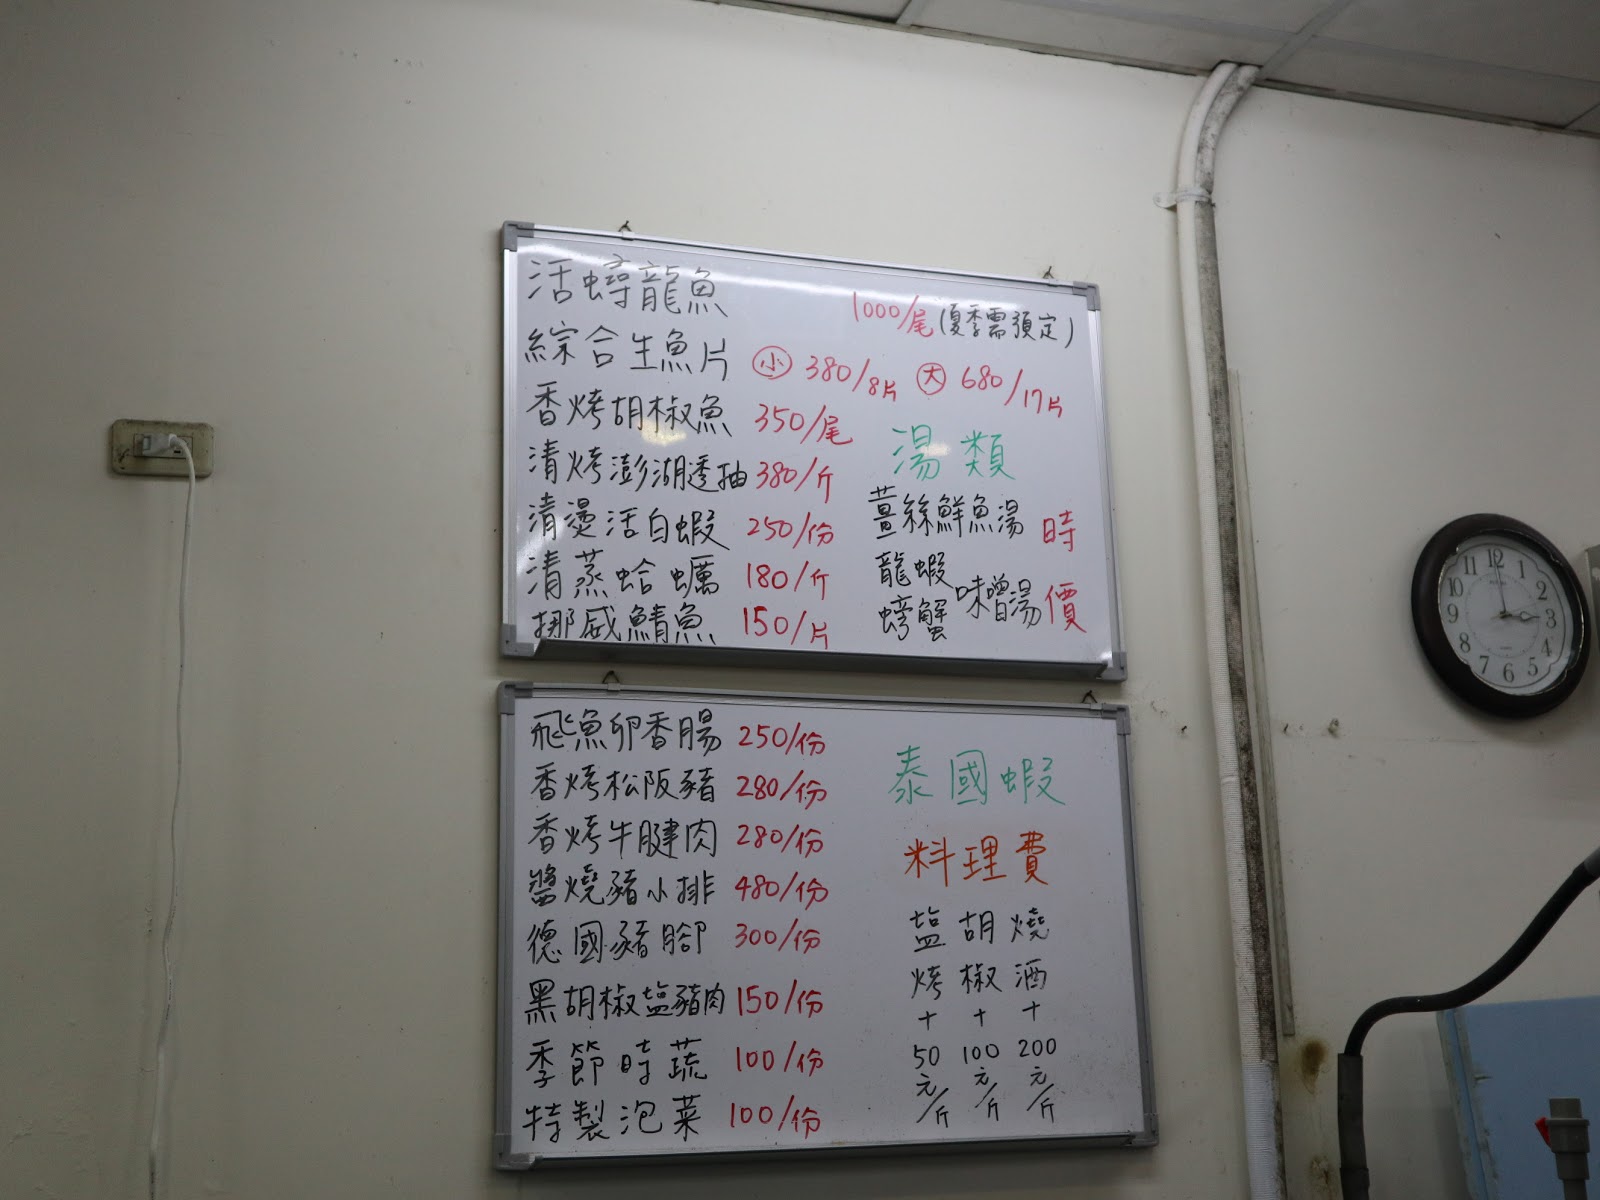 活蟳龍魚 1000/尾(夏季需預定)
綜合生魚片 小 380/8片 大 680/17片
香烤胡椒魚 350/尾
清烤澎湖透抽 380/斤
清燙活白蝦 250/份
清蒸蛤蠣 180/斤
挪威鯖魚 150/片
湯類
薑絲鮮魚湯
龍蝦
螃蟹
味噌湯
時價
飛魚卵香腸 250/份
香烤松阪豬 280/份
香烤牛腱肉 280/份
醬燒豬小排 480/份
德國豬腳 300/份
黑胡椒塩豬肉 150/份
季節時蔬 100/份
特製泡菜 100/份
泰國蝦
料理費
塩烤+50元/斤
胡椒+100元/斤
燒酒+200元/斤
11 12 1
10 2
9 3
8 4
7 6 5